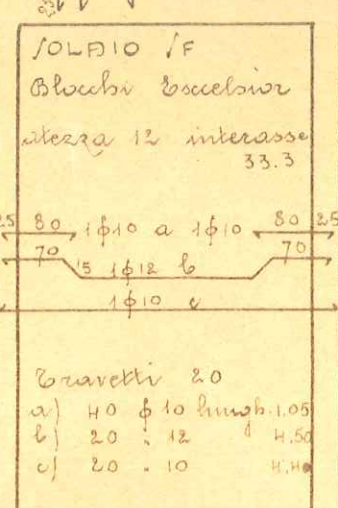 SOLAIO SF
Blocchi Excelsior
altezza 12 interasse
33.3
25 80 1ϕ10 a 1ϕ10 80 25
70 15 1ϕ12 b 70
1ϕ10 c
Travetti 20
a) 40 ϕ 10 lungh. 1.05
b) 20 " 12 4.50
c) 20 " 10 4.40